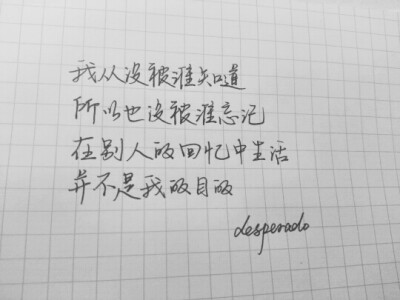 我从没被谁知道
所以也没被谁忘记
在别人的回忆中生活
并不是我的目的
desperado